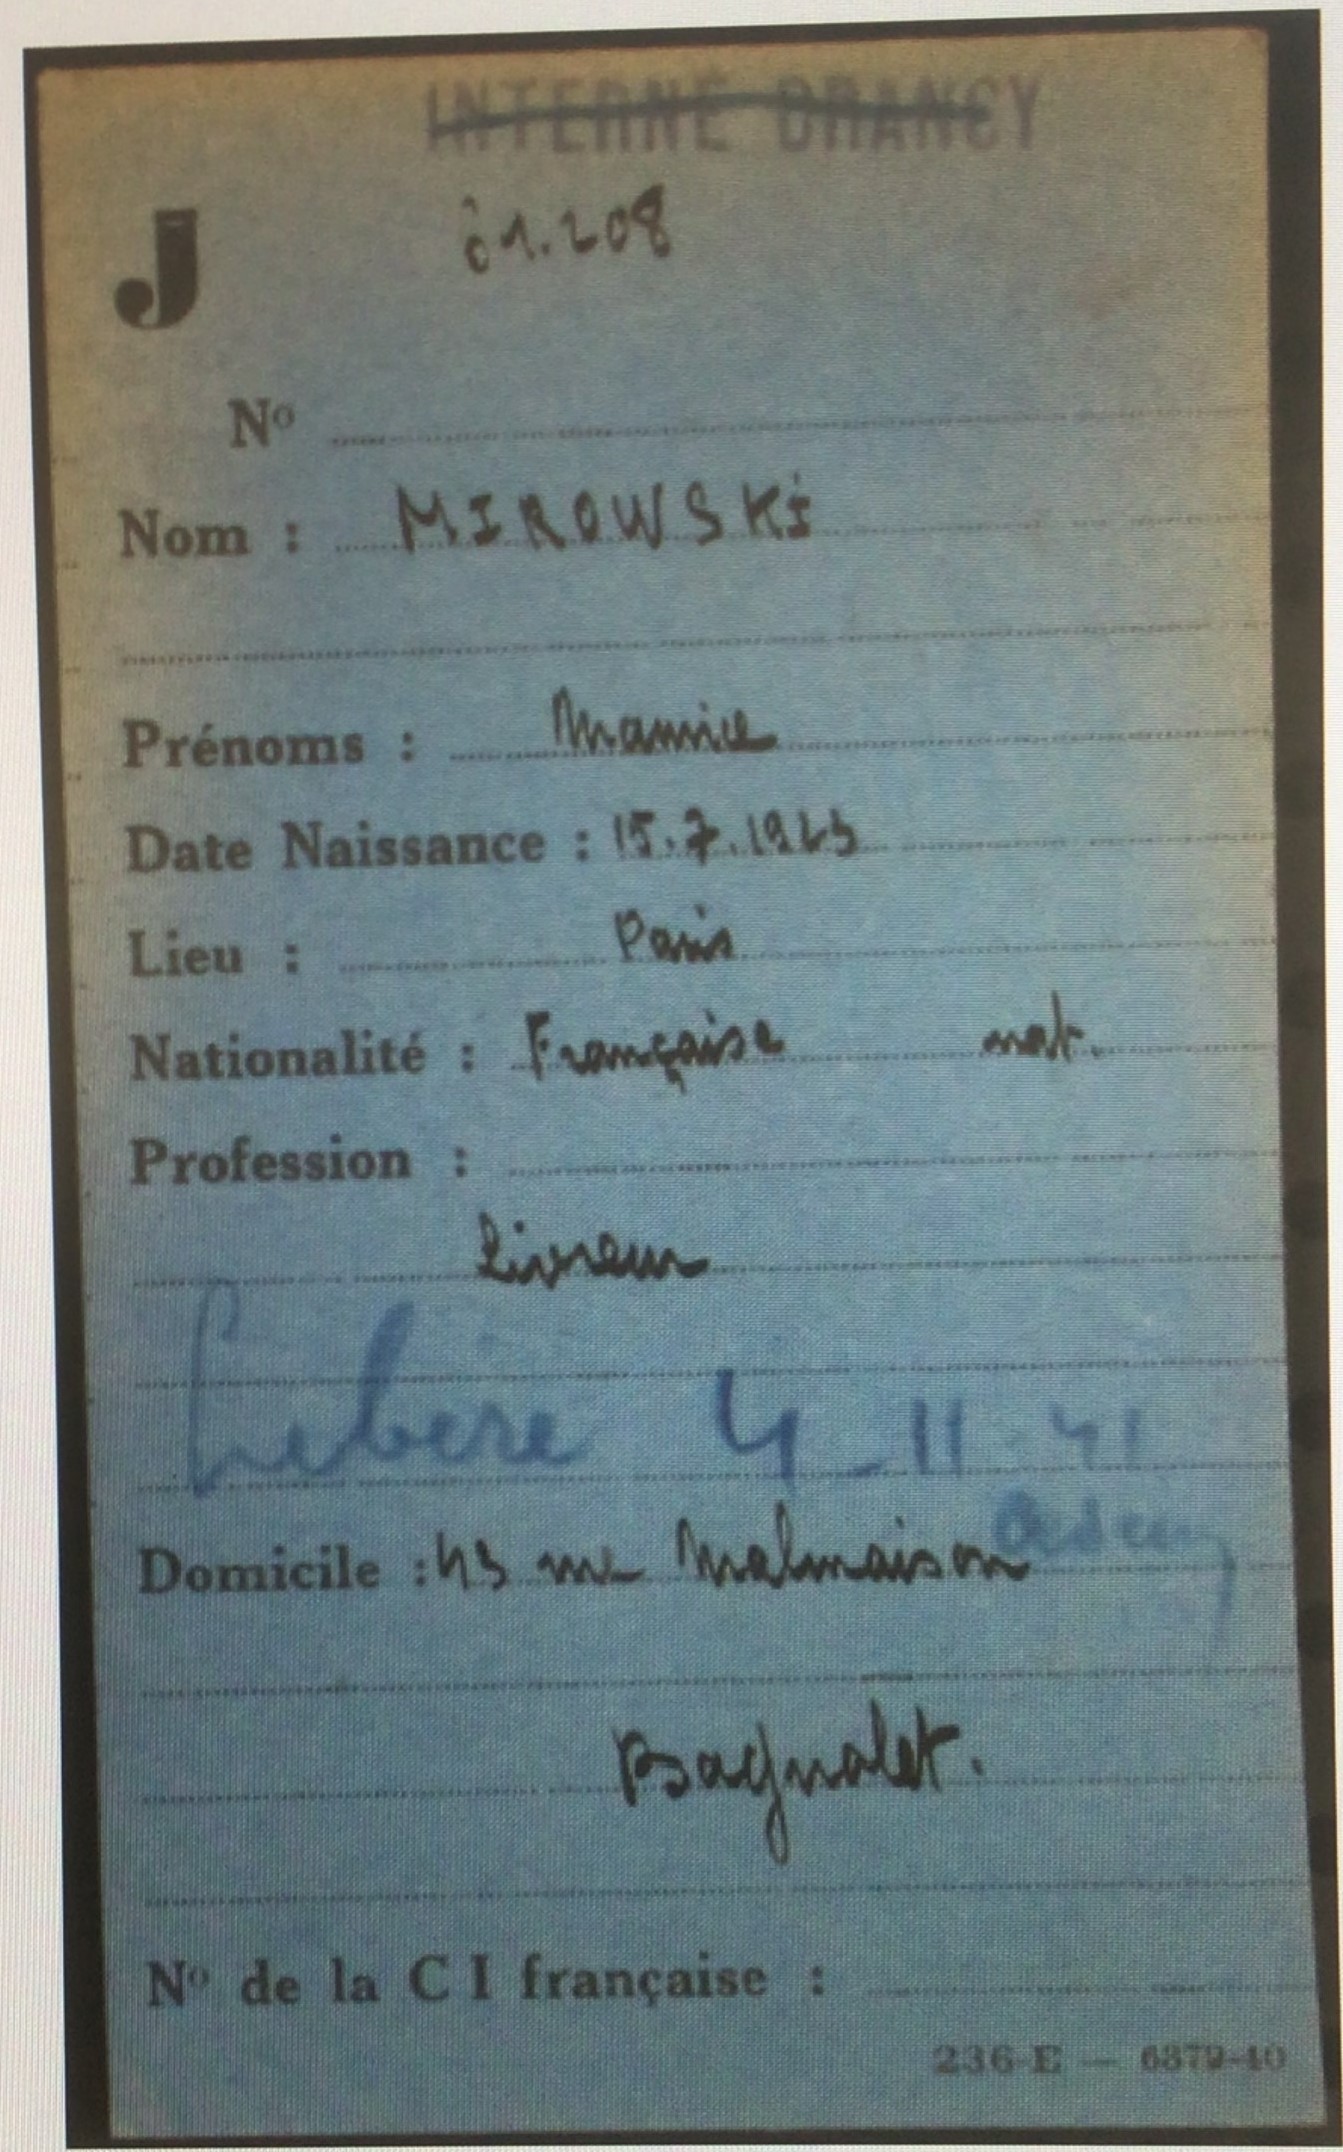 INTERNÉ DRANCY
J
61.208
No
Nom : MIROWSKi
Prénoms : Maurice
Date Naissance : 15.7.1923
Lieu : Paris
Nationalité : Française nat.
Profession :
livreur
Libéré 4_11.41
Domicile : 43 rue Malmaison
Bagnolet.
No de la C I française :
236-E — 6379-40